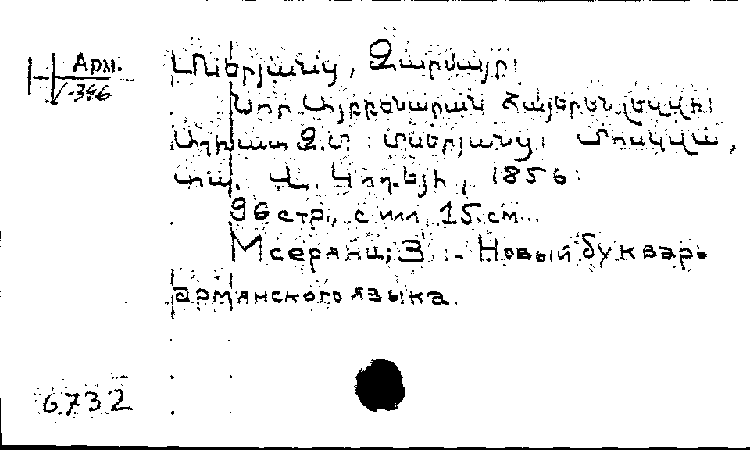 Арм.
1-346
Մսերյանց, Զարմայր։
Նոր Այբբենարան հայերեն լեզվի։
Աշխատ Զ.Մ. Մսերյանց։ Մոսկվա,
տպ. Վ. Գոտեյի, 1856։
96 стр., с илл. 15 см.
Мсерянц, З. - Новый букварь
армянского языка.
6732